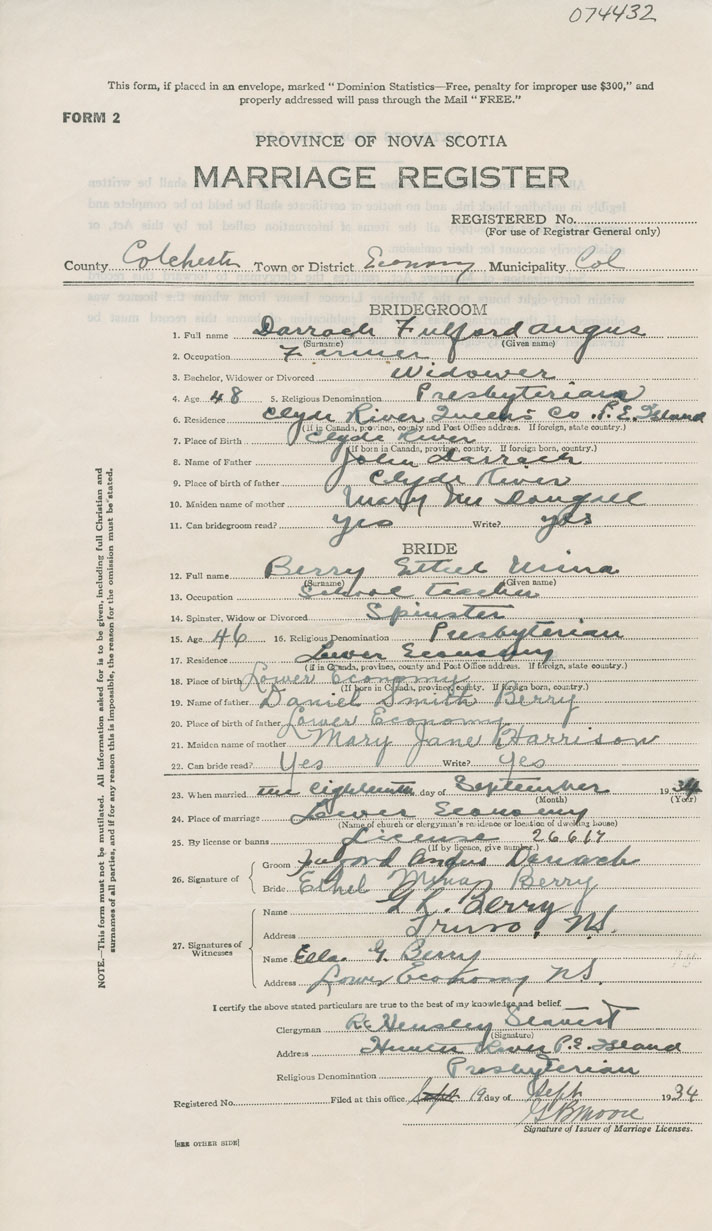 074432
This form, if placed in an envelope, marked "Dominion Statistics—Free, penalty for improper use $300," and
properly addressed will pass through the Mail "FREE."
FORM 2
PROVINCE OF NOVA SCOTIA
MARRIAGE REGISTER
REGISTERED No.
(For use of Registrar General only)
County Colchester Town or District Economy Municipality Col
BRIDEGROOM
1. Full name Darrach Fulford Angus
(Surname) (Given name)
2. Occupation Farmer
3. Bachelor, Widower or Divorced Widower
4. Age 48 5. Religious Denomination Presbyterian
6. Residence Clyde River Queens Co. P.E. Island
(If in Canada, province, county and Post Office address. If foreign, state country.)
7. Place of Birth Clyde River
(If born in Canada, province, county. If foreign born, country.)
8. Name of Father John Darrach
9. Place of birth of father Clyde River
10. Maiden name of mother Mary Mc Dougall
11. Can bridegroom read? yes Write? yes
BRIDE
12. Full name Berry Ethel Mina
(Surname) (Given name)
13. Occupation School teacher
14. Spinster, Widow or Divorced Spinster
15. Age 46 16. Religious Denomination Presbyterian
17. Residence Lower Economy
(If in Canada, province, county and Post Office address. If foreign, state country.)
18. Place of birth Lower Economy
(If born in Canada, province, county. If foreign born, country.)
19. Name of father Daniel Smith Berry
20. Place of birth of father Lower Economy
21. Maiden name of mother Mary Jane Harrison
22. Can bride read? Yes Write? Yes
23. When married the eighteenth day of September 1934
(Month) (Year)
24. Place of marriage Lower Economy
(Name of church or clergyman's residence or location of dwelling house)
25. By license or banns License 26617
(If by licence, give number.)
26. Signature of
Groom Fulford Angus Darrach
Bride Ethel Mina Berry
27. Signatures of Witnesses
Name G L. Berry
Address Truro, N.S.
Name Ella G. Berry
Address Lower Economy N.S.
I certify the above stated particulars are true to the best of my knowledge and belief.
Clergyman R. Hensley
(Signature)
Address Hunter River P.E. Island
Religious Denomination Presbyterian
Registered No. Filed at this office Sept 19 day of Sept 1934
G B Moore
Signature of Issuer of Marriage Licenses.
[SEE OTHER SIDE]
NOTE.—This form must not be mutilated. All information asked for is to be given, including full Christian and
surnames of all parties, and if for any reason this is impossible, the reason for the omission must be stated.